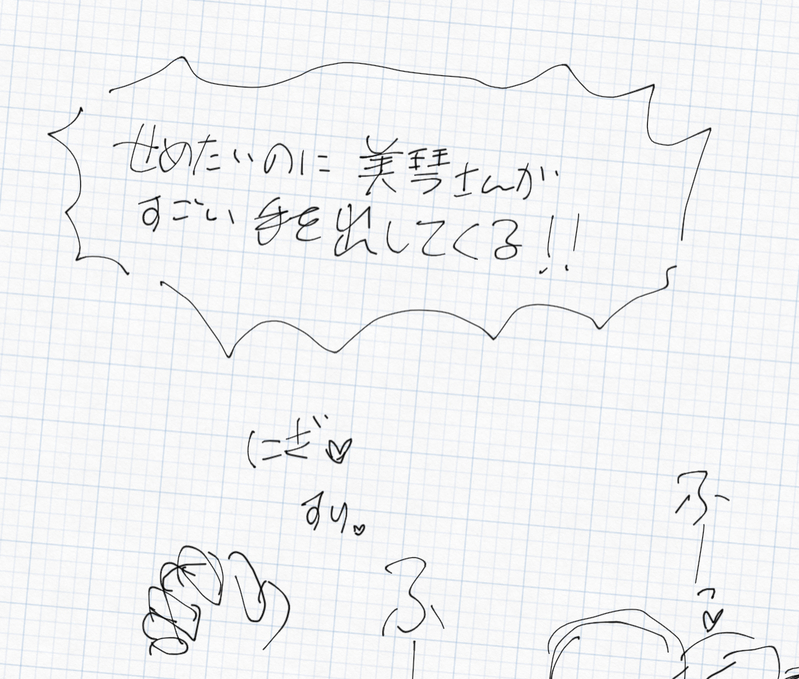 せめたいのに 美琴さんが
すごい 手を出してくる!!
にぎ♡
すり♡
ふー
ふーっ♡